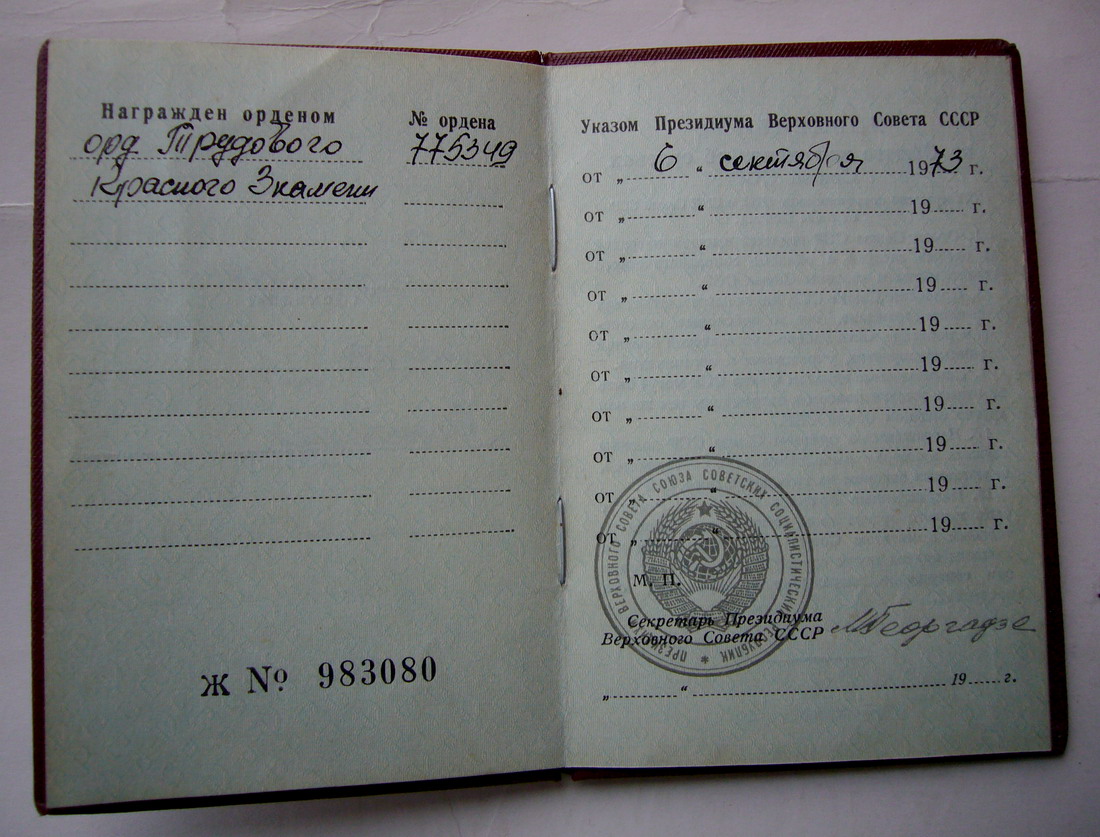 Награжден орденом
№ ордена
орд Трудового
775349
Красного Знамени
Ж № 983080
Указом Президиума Верховного Совета СССР
от „ 6 “ сентября 1973 г.
от „ “ 19 г.
от „ “ 19 г.
от „ “ 19 г.
от „ “ 19 г.
от „ “ 19 г.
от „ “ 19 г.
от „ “ 19 г.
от „ “ 19 г.
от „ “ 19 г.
ПРЕЗИДИУМ ВЕРХОВНОГО СОВЕТА СОЮЗА СОВЕТСКИХ СОЦИАЛИСТИЧЕСКИХ РЕСПУБЛИК *
М. П.
Секретарь Президиума
Верховного Совета СССР
МГеоргадзе
„ “ 19 г.